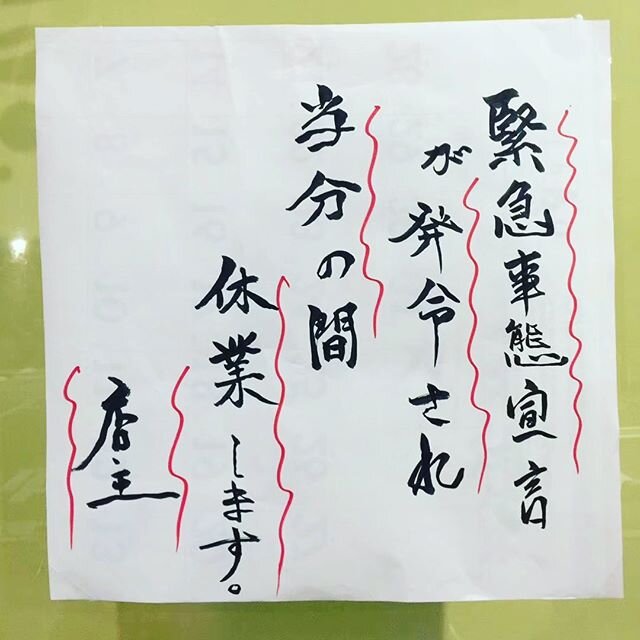 緊急事態宣言
が発令され
当分の間
休業します。
店主